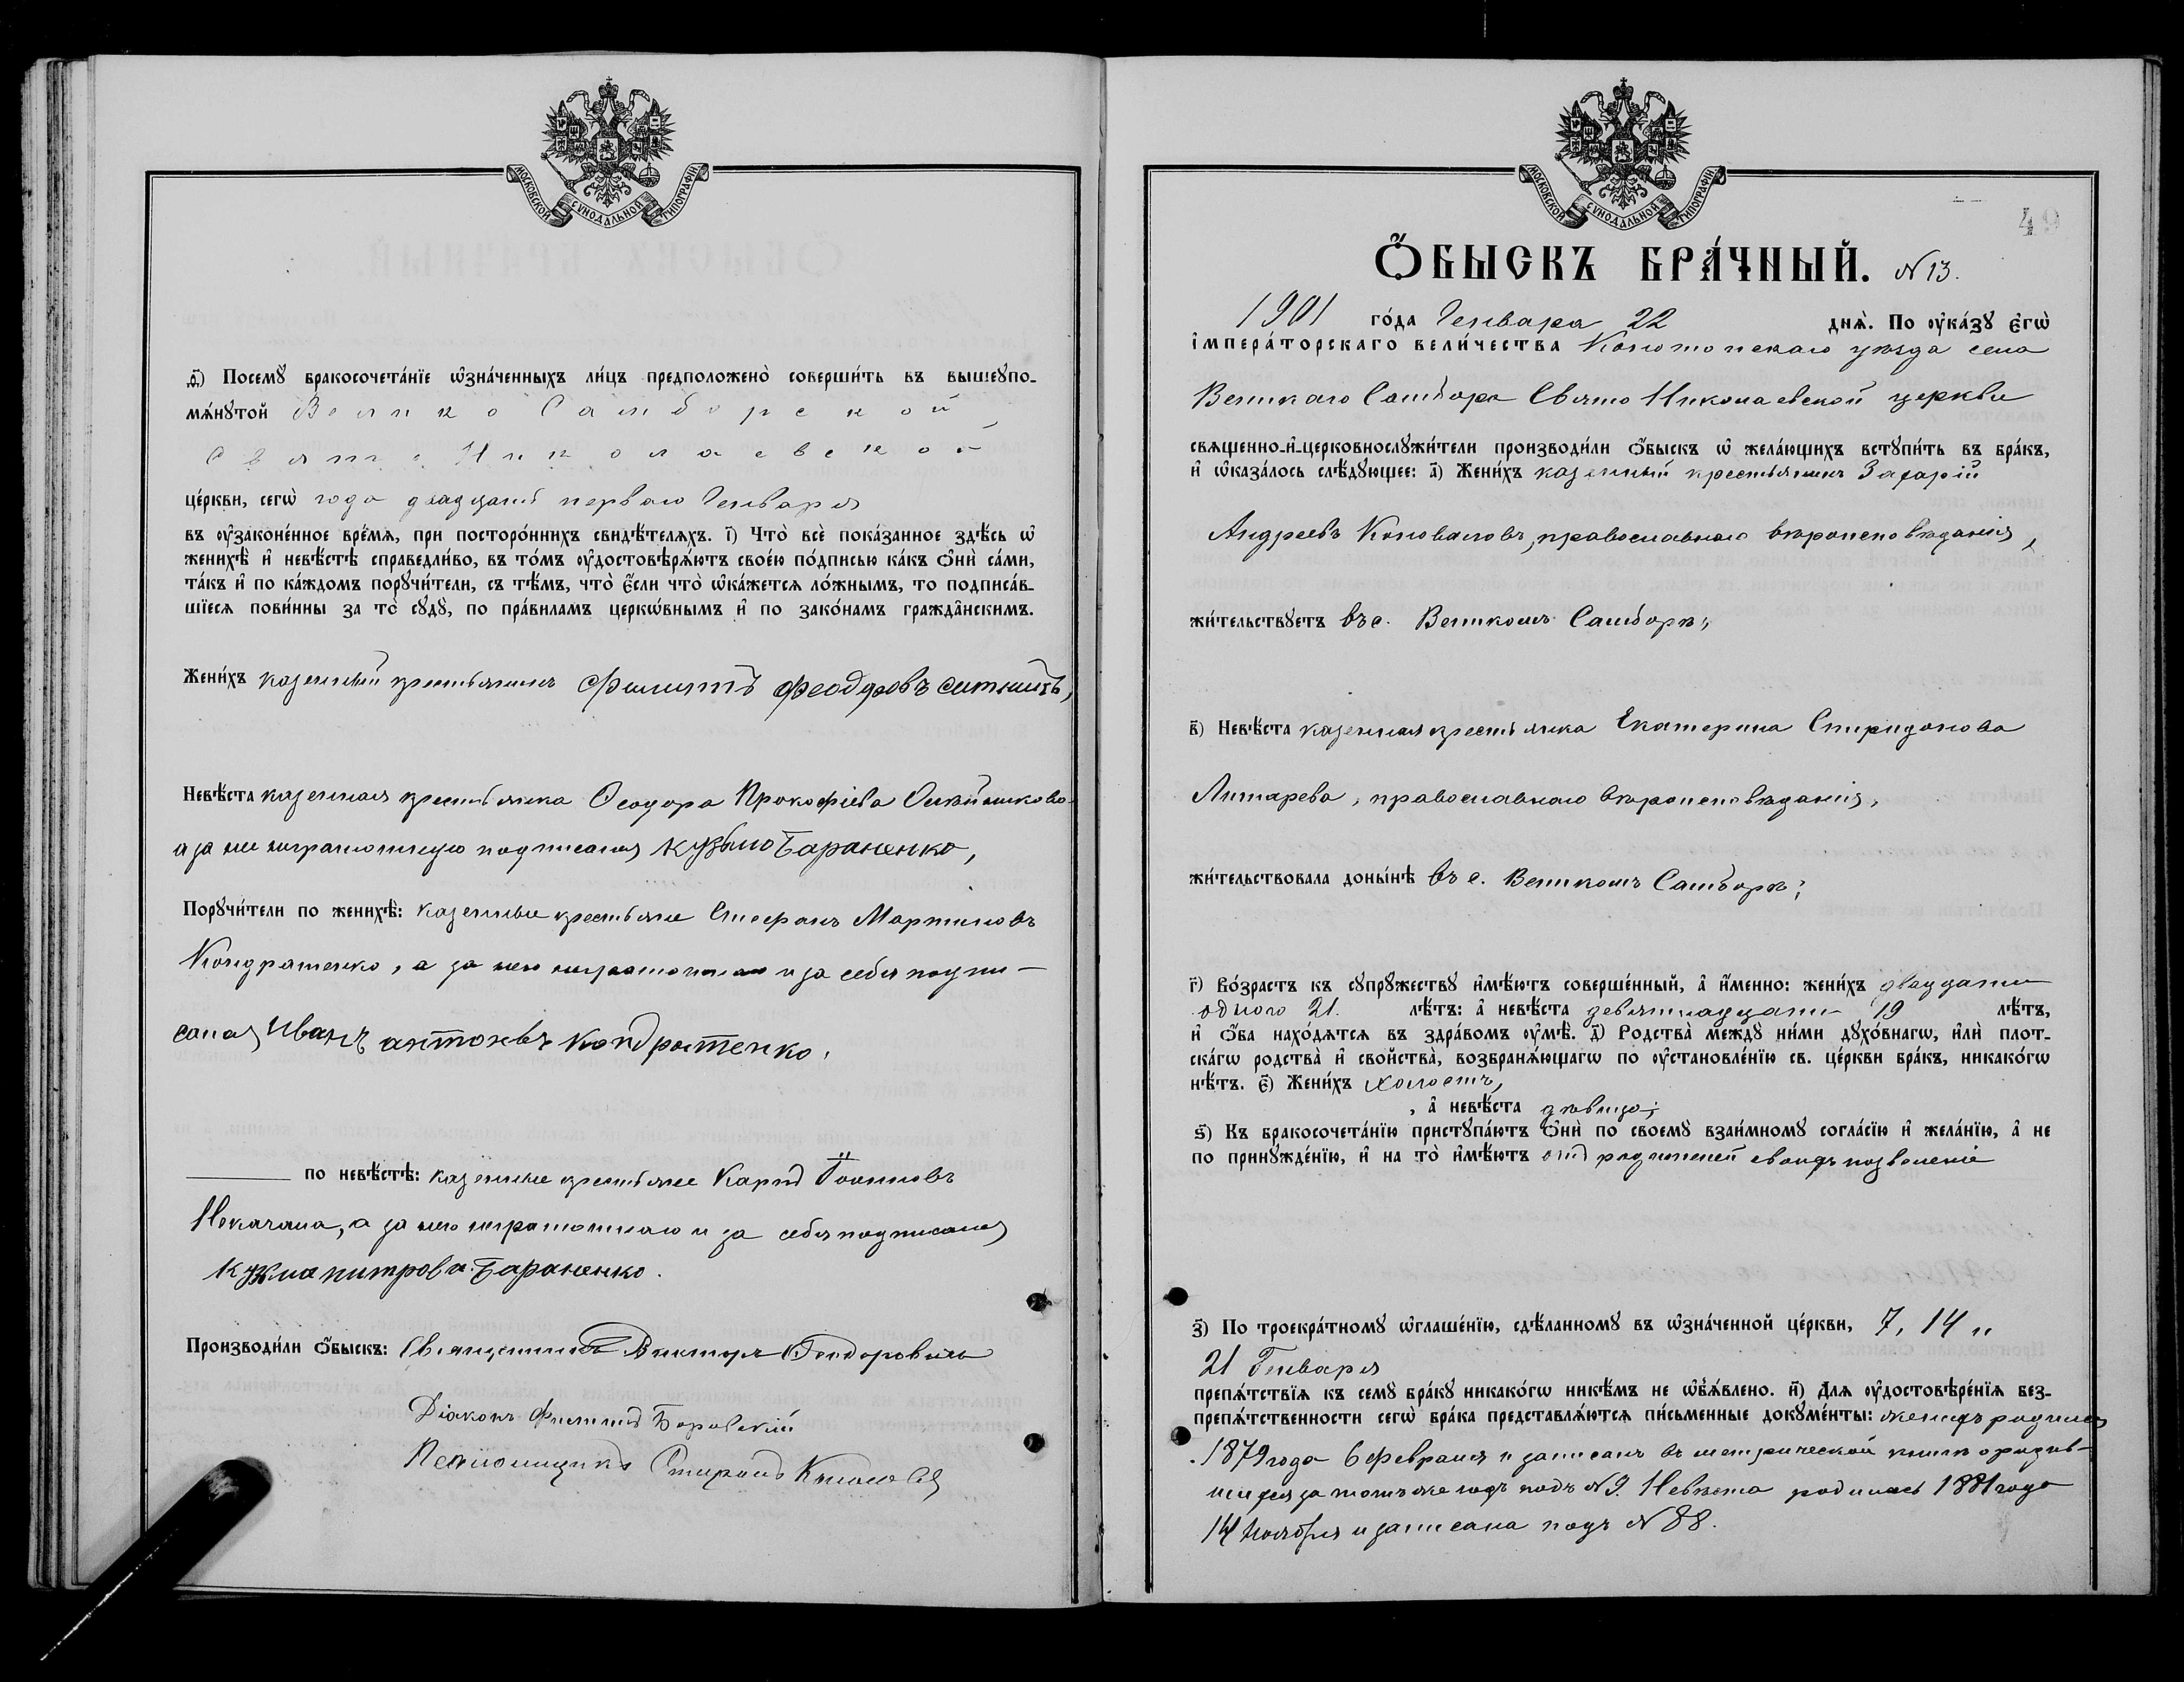 МОСКОВСКОЙ СѴНОДАЛЬНОЙ ТИПОГРАФІИ
д҃) Посемꙋ̀ бракосочета́нїе ѡ҆зна́ченныхъ ли́цъ предположено̀ соверши́ть въ вышеꙋпо-
мѧ́нꙋтой Велико Самборской
Свято Николаевской
це́ркви, сегѡ̀ года двадцать перваго Генваря
въ ᲂу҆зако́ненное вре́мѧ, при посторо́ннихъ свидѣ́телѧхъ. і҃) Что̀ всѐ пока́занное здѣ́сь ѡ҆
женихѣ̀ и҆ невѣ́стѣ справедли́во, въ то́мъ ᲂу҆достовѣрѧ́ютъ свое́ю по́дписью ка́къ ѻ҆нѝ са́ми,
та́къ и҆ по ка́ждомъ порꙋчи́тели, съ тѣ́мъ, что̀ є҆́сли что̀ ѡ҆ка́жетсѧ ло́жнымъ, то подписа́в-
шїесѧ пови́нны за то̀ сꙋдꙋ̀, по пра́виламъ церкѡ́внымъ и҆ по зако́намъ гражда̂нскимъ.
Жени́хъ казенный крестьянинъ Филиппъ Феодоровъ Ситникъ,
Невѣ́ста казенная крестьянка Феодора Прокофіева Олейникова
а за неграмотную подписался Кузьма Бараненко,
Порꙋчи́тели по женихѣ̀: казенные крестьяне Стефанъ Мартиновъ
Кондратенко, а за него неграмотнаго и за себя подпи-
сался Иванъ антоновъ Кондратенко.
по невѣ́стѣ: казенные крестьяне Карпъ Іоанновъ
Некачала, а за него неграмотнаго и за себя подписался
Кузма питрова Бараненко.
Производи́ли ѻ҆́быскъ: Священникъ Викторъ Феодоровичъ
Діаконъ Филиппъ Боровскій
Псаломщикъ Спиридонъ
МОСКОВСКОЙ СѴНОДАЛЬНОЙ ТИПОГРАФІИ
49
Ѻ҆́БЫСКЪ БРА́ЧНЫЙ. N 13.
1901 го́да Генваря 22 днѧ̀. По ᲂу҆ка́зꙋ є҆гѡ̀
і҆мпера́торскаго вели́чества Конотопскаго уѣзда села
Великаго Самбора Свято Николаевской церкви
свѧщенно-и҆-церковнослꙋжи́тели производи́ли ѻ҆́быскъ ѡ҆ жела́ющихъ встꙋпи́ть въ бра́къ,
и҆ ѡ҆каза́лось слѣ́дꙋющее: а҃) Жени́хъ казенный крестьянинъ Захарій
Андреевъ Коноваловъ, православнаго вѣроисповѣданія,
жи́тельствꙋетъ въ с. Великомъ Самборѣ;
в҃) Невѣ́ста казенная крестьянка Екатерина Спиридонова
Литарева, православнаго вѣроисповѣданія,
жи́тельствовала доны́нѣ въ с. Великомъ Самборѣ;
г҃) Во́зрастъ къ сꙋпрꙋ́жествꙋ и҆мѣ́ютъ соверше́нный, а҆ и҆́менно: жени́хъ двадцати
одного 21. лѣ́тъ: а҆ невѣ́ста девятнадцати 19 лѣ́тъ,
и҆ ѻ҆́ба нахо́дѧтсѧ въ здра́вомъ ᲂу҆мѣ̀. д҃) Родства̀ междꙋ̀ ни́ми дꙋхо́внагѡ, и҆лѝ плот-
ска́гѡ родства̀ и҆ сво́йства̀, возбранѧ́ющагѡ по ᲂу҆становле́нїю св. це́ркви бра́къ, никако́гѡ
нѣ́тъ. є҃) Жени́хъ холостъ,
, а҆ невѣ́ста дѣвица;
ѕ҃) Къ бракосочета́нїю пристꙋпа́ютъ ѻ҆нѝ по своемꙋ̀ взаи́мномꙋ согла́сїю и҆ жела́нїю, а҆ не
по принꙋжде́нїю, и҆ на то̀ и҆мѣ́ютъ отъ родителей своихъ позволеніе
з҃) По троекра́тномꙋ ѡ҆глаше́нїю, сдѣ́ланномꙋ въ ѡ҆зна́ченной це́ркви, 7, 14 и
21 Генваря
препѧ́тствїѧ къ семꙋ̀ бра́кꙋ никако́гѡ никѣ́мъ не ѡ҆б̾ѧ́влено. и҃) Длѧ ᲂу҆достовѣре́нїѧ без-
препѧ́тственности сегѡ̀ бра́ка представлѧ́ютсѧ пи́сьменные докꙋме́нты: женихъ родился
1879 года 6 февраля и записанъ въ метрической книгѣ о родив-
шихся за тотъ же годъ подъ N 9. Невѣста родилась 1881 года
14 ноября и записана подъ N 88.